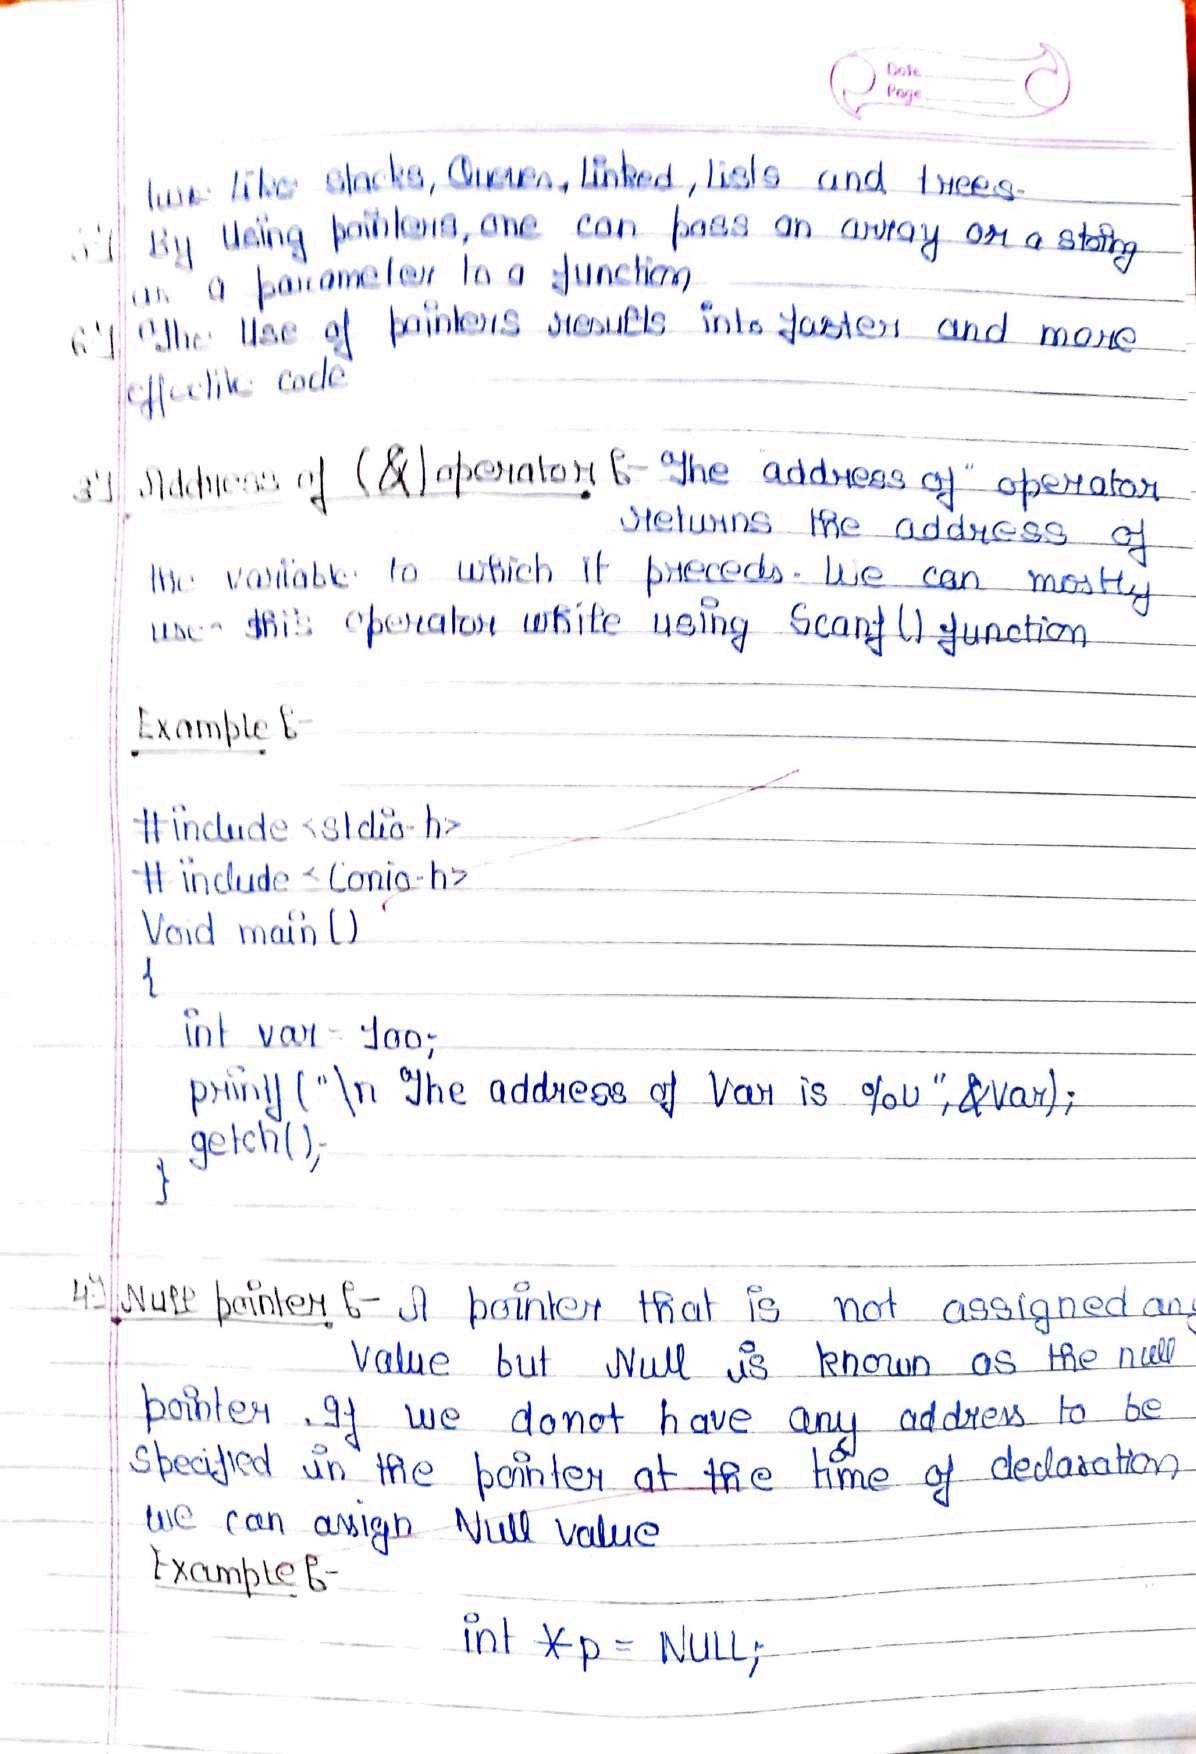 Date
Page
ture like stacks, Queues, linked, lists and trees.
5) By Using pointers, one can pass an array or a string
as a parameter to a function
6) "The Use of pointers results into faster and more
effective code
3) Address of (&) operator :- "The address of" operator
returns the address of
the variable to which it preceds. We can mostly
use this operator while using Scanf () function
Example :-
#include <stdio.h>
#include <Conio.h>
Void main ()
{
int var = 100;
printf ("\n The address of Var is %u", &var);
getch();
}
4) Null pointer :- A pointer that is not assigned any
Value but Null is known as the null
pointer. If we donot have any address to be
specified in the pointer at the time of declaration
we can assign Null value
Example :-
int *p = NULL;